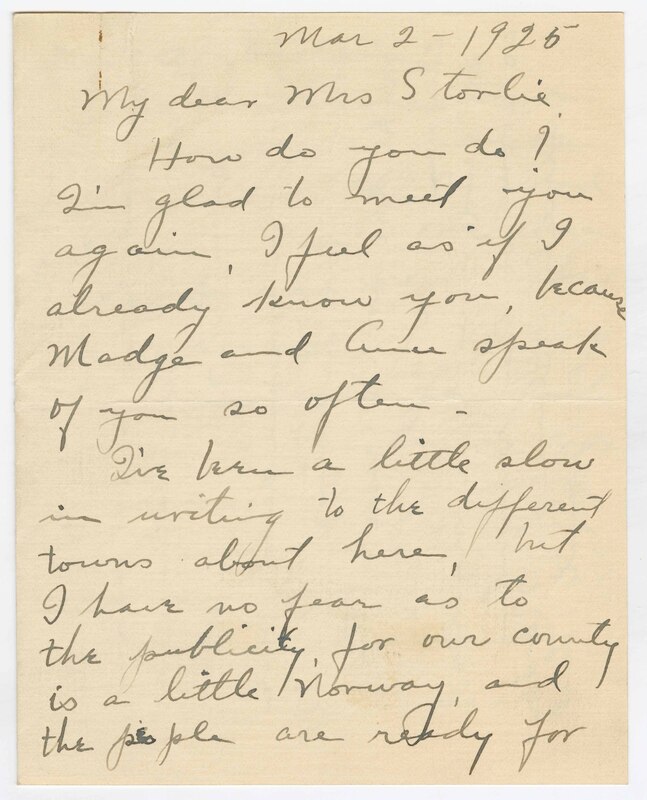 Mar 2 - 1925
My dear Mrs Storlie,
How do you do?
I'm glad to meet you
again, I feel as if I
already know you, because
Madge and Anne speak
of you so often -
I've been a little slow
in writing to the different
towns about here, but
I have no fear as to
the publicity, for our county
is a little Norway, and
the people are ready for